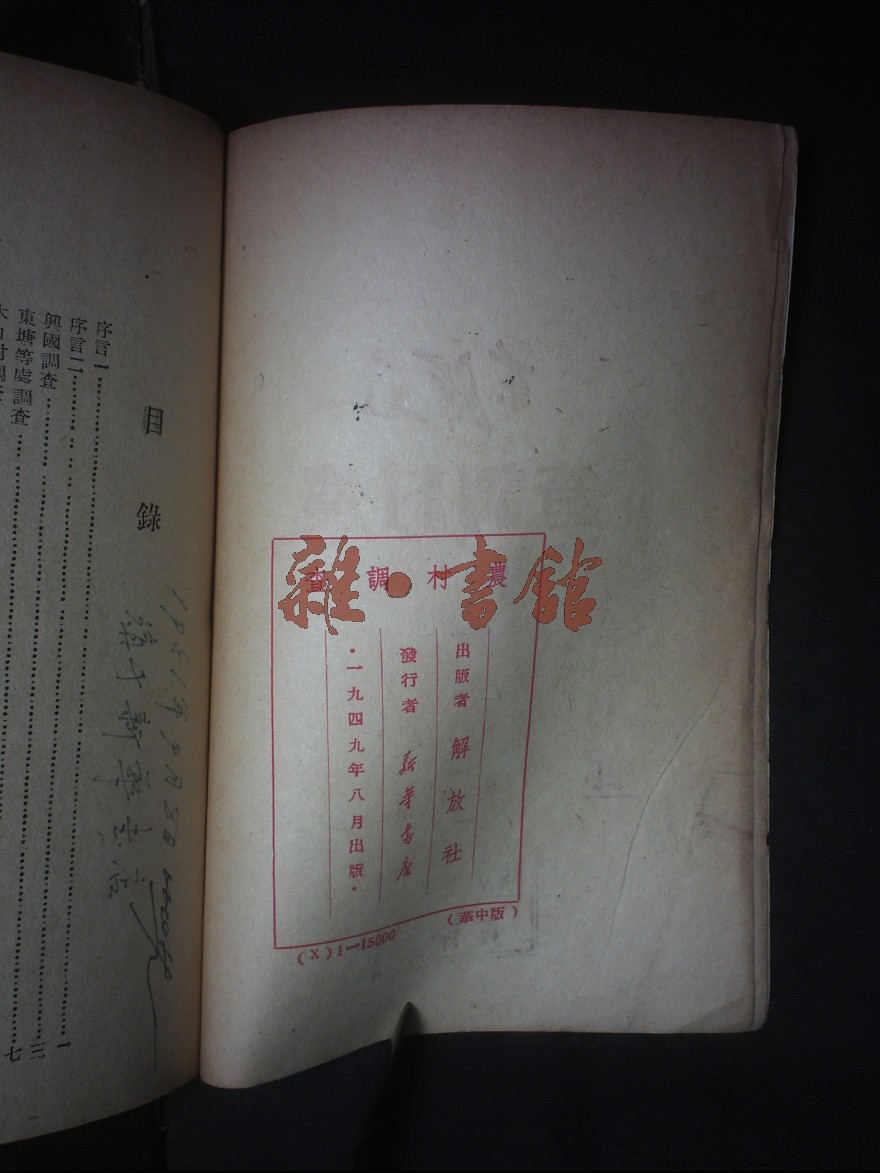 農村調查
出版者 解放社
發行者 新華書店
·一九四九年八月出版·
(華中版)
(X)1—15000
雜·書館
目錄
序言一 一
序言二 三
興國調查 七
東塘等處調查
1951年9月5日
新華書店